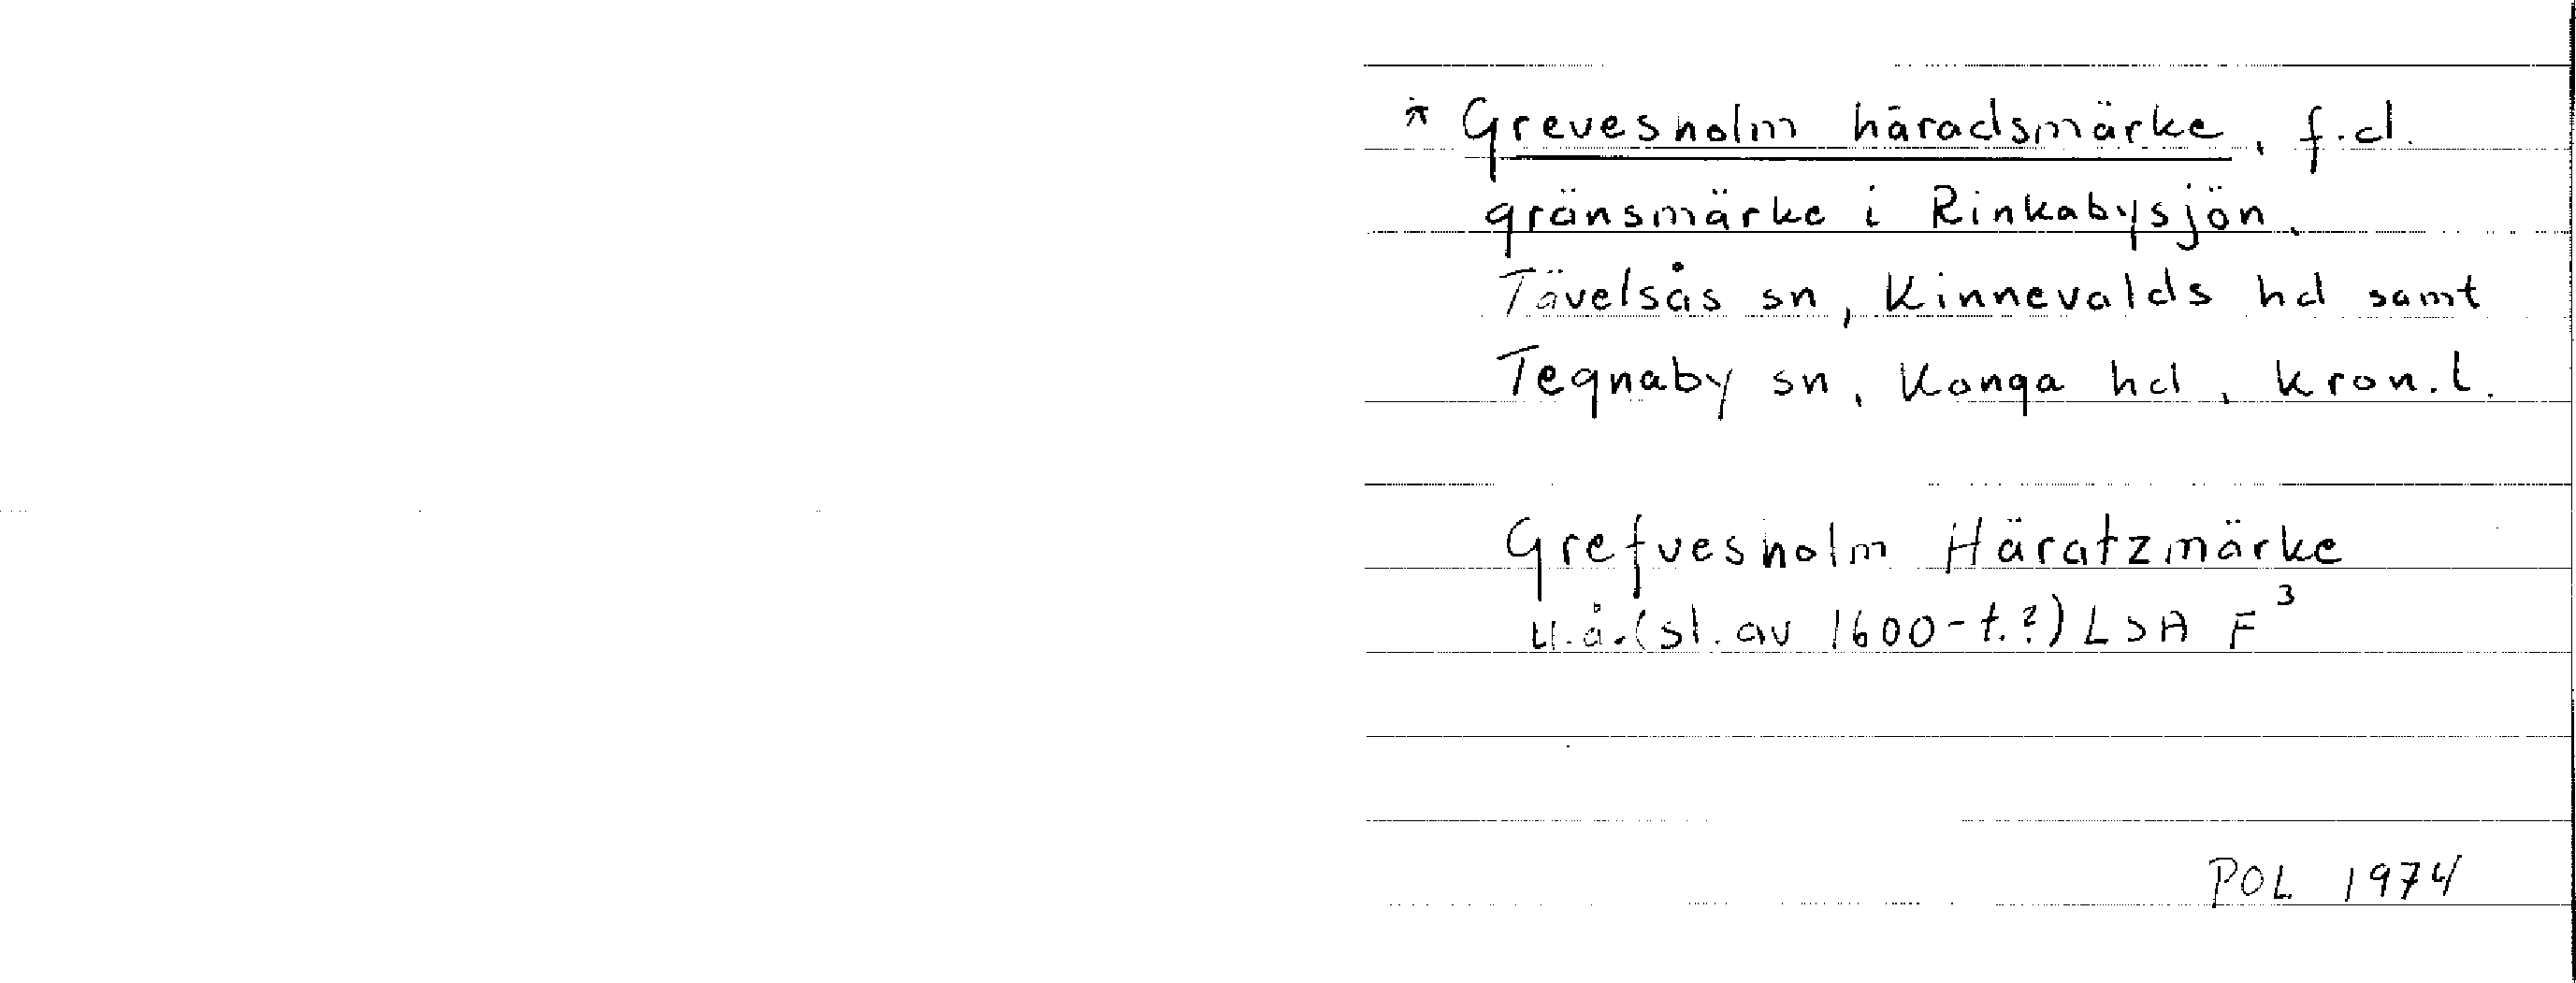 * Grevesholm häradsmärke, f.d.
gränsmärke i Rinkabysjön,
Tävelsås sn, Kinnevalds hd samt
Tegnaby sn, Konga hd, Kron.l.
Grefvesholm Häratzmärke
u.å.(sl. av 1600-t.?) LSA F³
POL 1974